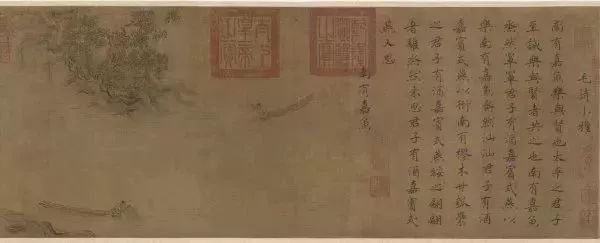 毛詩小雅
南有嘉魚樂與賢也太平之君子
至誠樂與賢者共之也南有嘉魚
烝然罩罩君子有酒嘉賓式燕以
樂南有嘉魚烝然汕汕君子有酒
嘉賓式燕以衎南有樛木甘瓠纍
之君子有酒嘉賓式燕綏之翩翩
者鵻烝然來思君子有酒嘉賓式
燕又思
南有嘉魚